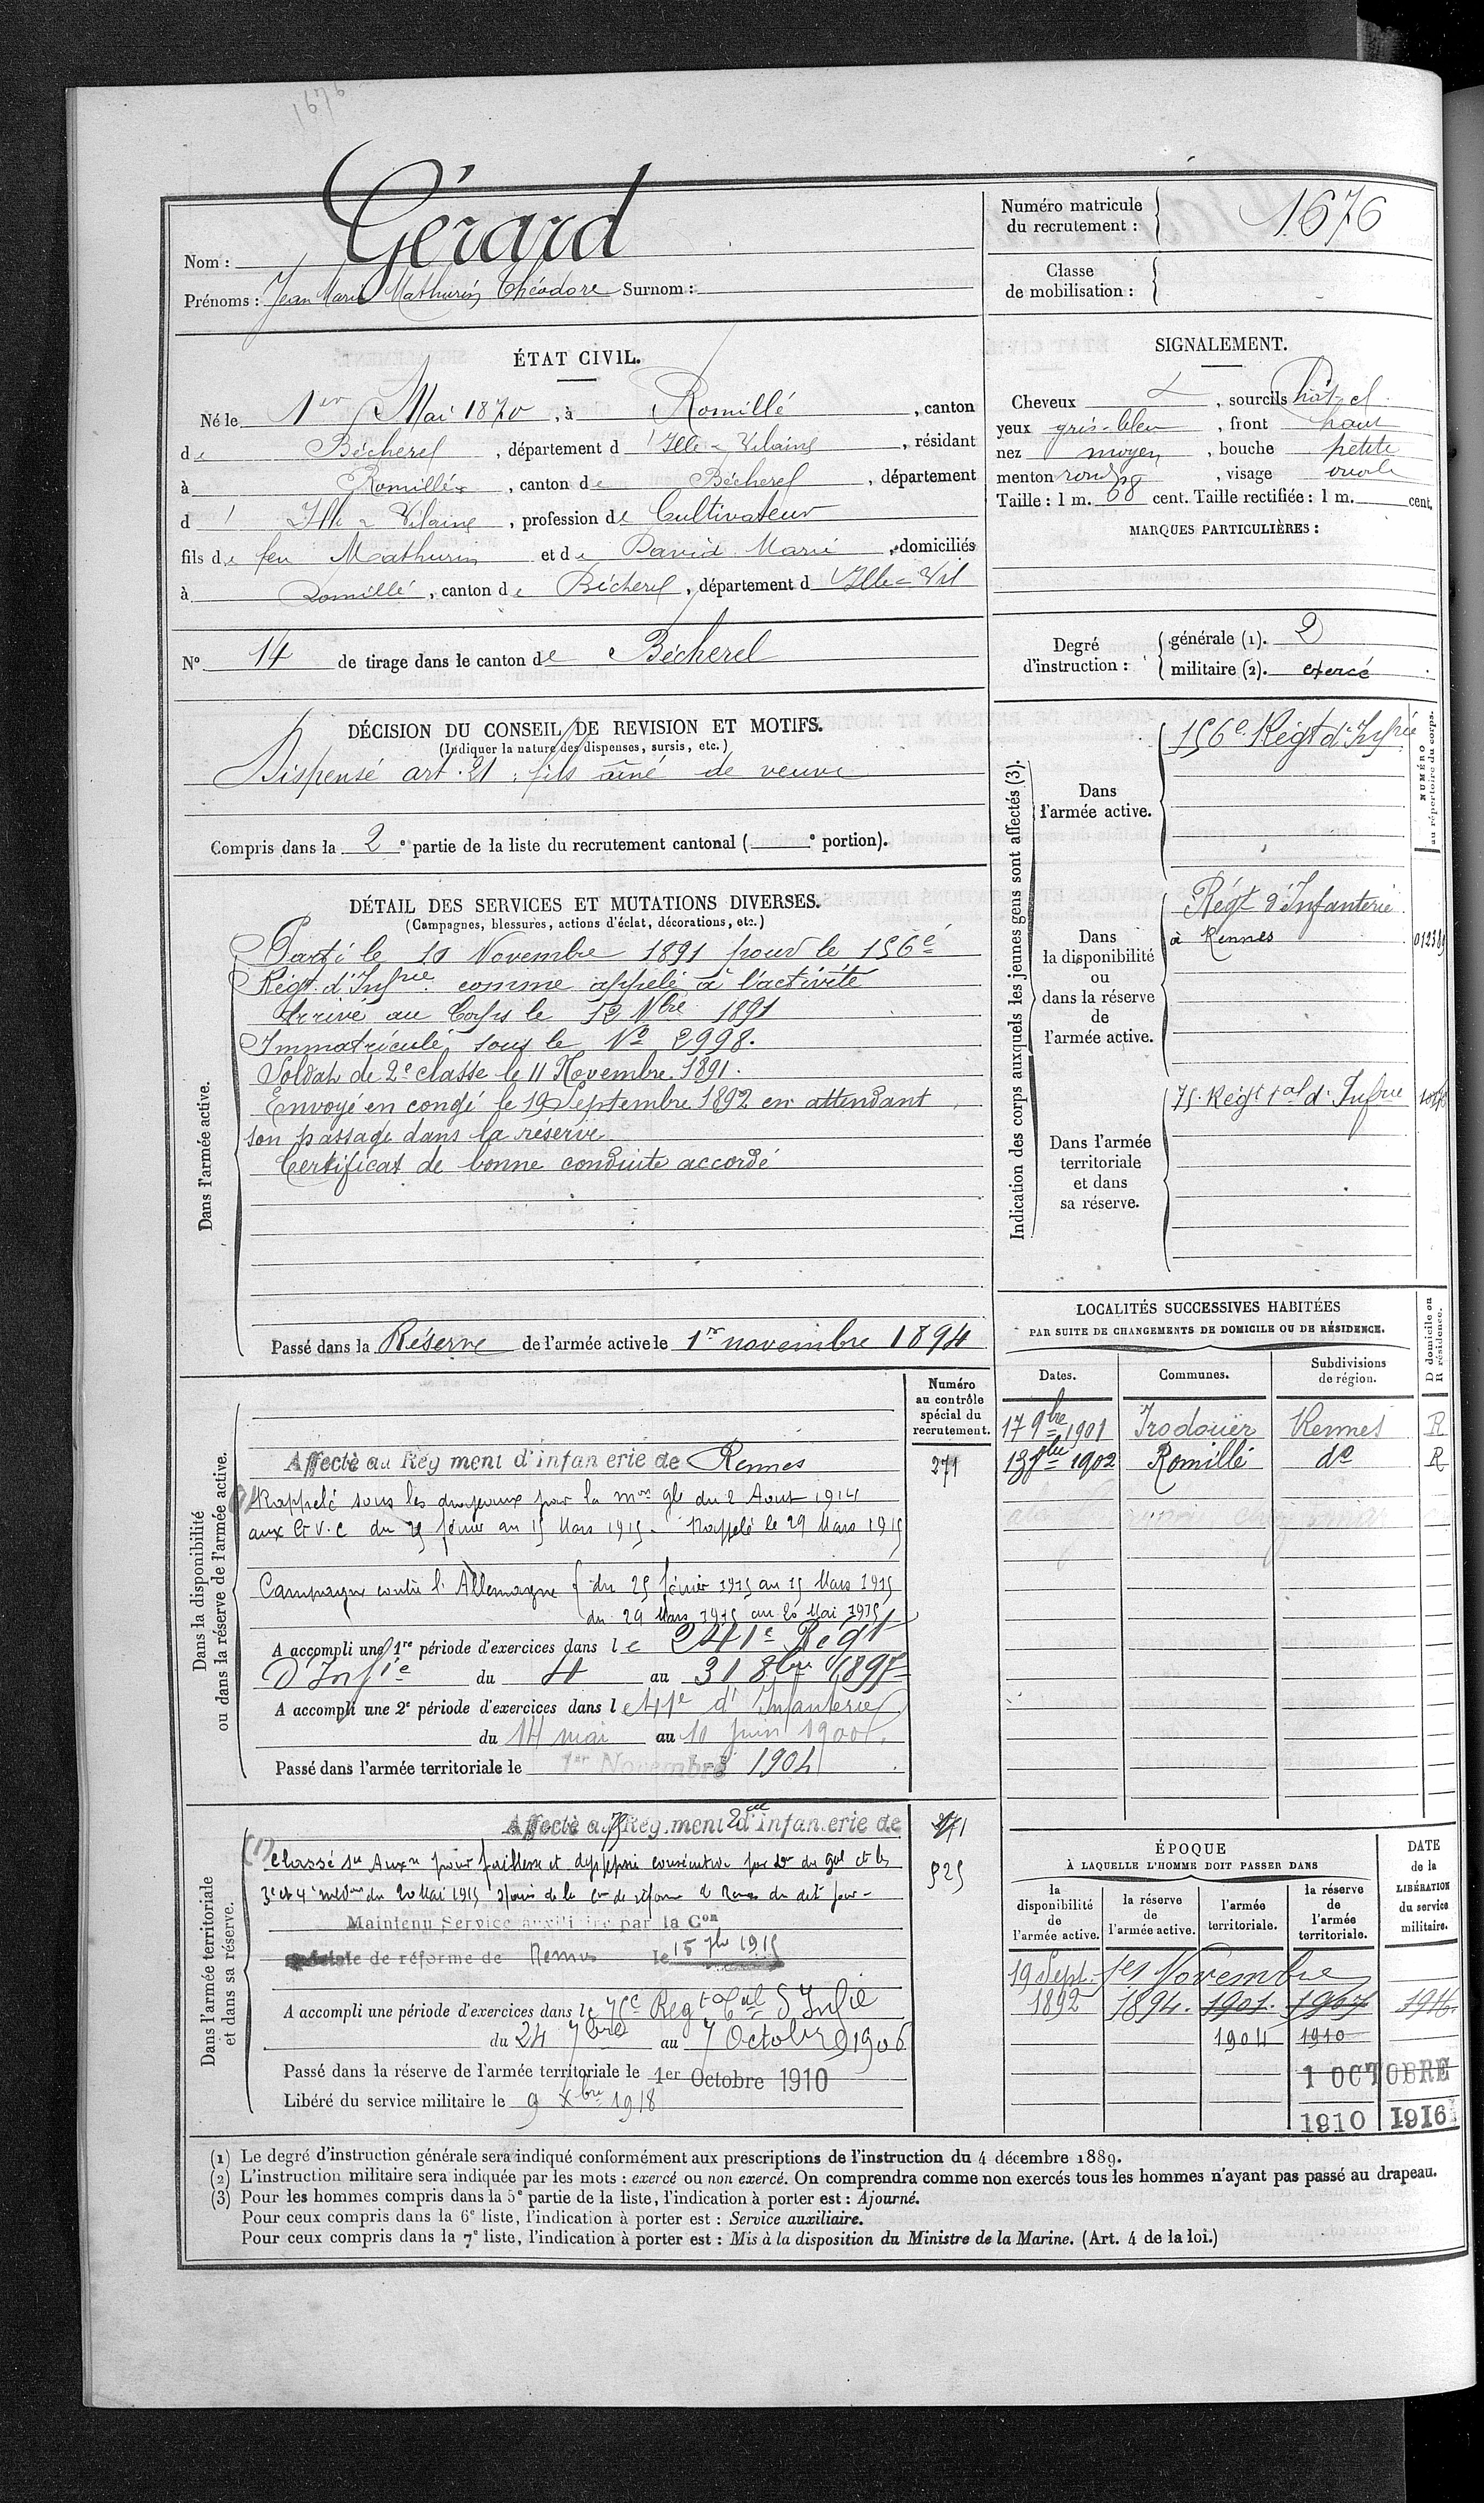 1676
Nom : Gérard
Prénoms : Jean Marie Mathurin Théodore Surnom :
Numéro matricule du recrutement : 1676
Classe de mobilisation :
ÉTAT CIVIL.
Né le 1er Mai 1870, à Romillé, canton
de Bécherel, département d'Ille-Vilaine, résidant
à Romillé, canton de Bécherel, département
d'Ille & Vilaine, profession de Cultivateur
fils de feu Mathurin et de David Marie, domiciliés
à Romillé, canton de Bécherel, département d'Ille-Vil
N° 14 de tirage dans le canton de Bécherel
SIGNALEMENT.
Cheveux &, sourcils chât. cl.
yeux gris-bleu, front haut
nez moyen, bouche petite
menton rond, visage ovale
Taille : 1 m. 68 cent. Taille rectifiée : 1 m. cent.
MARQUES PARTICULIÈRES :
Degré d'instruction : générale (1). 2
militaire (2). exercé
DÉCISION DU CONSEIL DE REVISION ET MOTIFS.
(Indiquer la nature des dispenses, sursis, etc.)
Dispensé art. 21 : fils aîné de veuve
Compris dans la 2e partie de la liste du recrutement cantonal ( e portion).
DÉTAIL DES SERVICES ET MUTATIONS DIVERSES.
(Campagnes, blessures, actions d'éclat, décorations, etc.)
Dans l'armée active.
Parti le 10 Novembre 1891 pour le 156e
Régt. d'Infrie comme appelé à l'activité
Arrivé au Corps le 12 Nbre 1891
Immatriculé sous le No 2998.
Soldat de 2e classe le 11 Novembre 1891.
Envoyé en congé le 19 Septembre 1892 en attendant
son passage dans la réserve
Certificat de bonne conduite accordé
Passé dans la Réserve de l'armée active le 1er novembre 1894
Indication des corps auxquels les jeunes gens sont affectés (3).
NUMÉRO au répertoire du corps.
Dans l'armée active.
156e Régt d'Infrie
Dans la disponibilité ou dans la réserve de l'armée active.
Régt d'Infanterie
à Rennes
01238
Dans l'armée territoriale et dans sa réserve.
75. Régt tal d'Infrie
LOCALITÉS SUCCESSIVES HABITÉES
PAR SUITE DE CHANGEMENTS DE DOMICILE OU DE RÉSIDENCE.
Dates. Communes. Subdivisions de région. D domicile ou R résidence.
17 9bre 1901 Irodouër Rennes R
13 1902 Romillé do R
Dans la disponibilité ou dans la réserve de l'armée active.
Numéro au contrôle spécial du recrutement.
Affecté au Régiment d'infanterie de Rennes 271
Rappelé sous les drapeaux par la mon gle du 2 Aout 1914
aux G.V.C du 25 février au 15 Mars 1915. Rappelé le 29 Mars 1915
Campagne contre l'Allemagne { du 25 février 1915 au 15 Mars 1915
du 29 Mars 1915 au 20 Mai 1915
A accompli une 1re période d'exercices dans le 241e Régt
D'Infie du 4 au 31 8bre 1897
A accompli une 2e période d'exercices dans le 41e d'Infanterie
du 14 mai au 10 juin 1900.
Passé dans l'armée territoriale le 1er Novembre 1904
Dans l'armée territoriale et dans sa réserve.
Affecté au 75 Régiment d'infanterie de
(1) Classé Auxre pour faiblesse et dyspepsie consécutive par don du Gal ct les
3e et 4e du 20 Mai 1915 de la Con de réforme de Rennes du dit jour.
525
Maintenu Service auxiliaire par la Con
spéciale de réforme de Rennes le 15 7bre 1915
A accompli une période d'exercices dans le 75e Régt tal d'Infie
du 24 7bre au 7 Octobre 1906
Passé dans la réserve de l'armée territoriale le 1er Octobre 1910
Libéré du service militaire le 9 Xbre 1918
ÉPOQUE
À LAQUELLE L'HOMME DOIT PASSER DANS
DATE de la LIBÉRATION du service militaire.
la disponibilité de l'armée active. la réserve de l'armée active. l'armée territoriale. la réserve de l'armée territoriale.
19 Sept. 1er Novembre
1892 1894. 1901. 1907 1916.
1904 1910
1 OCTOBRE
1910 1916
(1) Le degré d'instruction générale sera indiqué conformément aux prescriptions de l'instruction du 4 décembre 1889.
(2) L'instruction militaire sera indiquée par les mots : exercé ou non exercé. On comprendra comme non exercés tous les hommes n'ayant pas passé au drapeau.
(3) Pour les hommes compris dans la 5e partie de la liste, l'indication à porter est : Ajourné.
Pour ceux compris dans la 6e liste, l'indication à porter est : Service auxiliaire.
Pour ceux compris dans la 7e liste, l'indication à porter est : Mis à la disposition du Ministre de la Marine. (Art. 4 de la loi.)